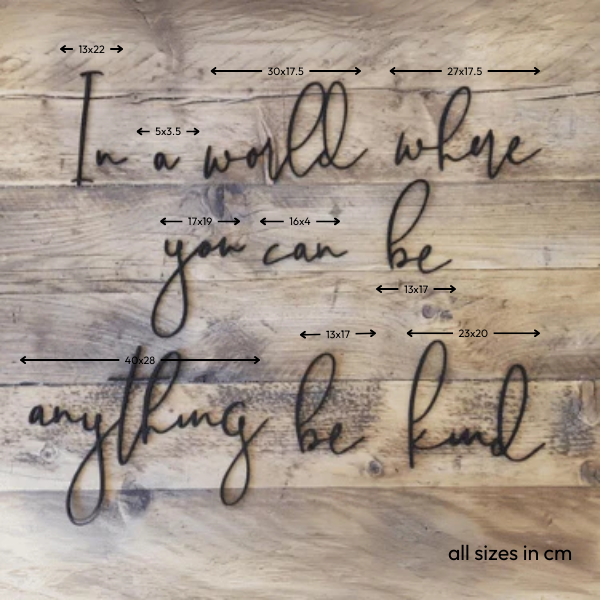 13x22
30x17.5 27x17.5
5x3.5
In a world where
17x19 16x4
you can be
13x17
13x17 23x20
40x28
anything be kind
all sizes in cm